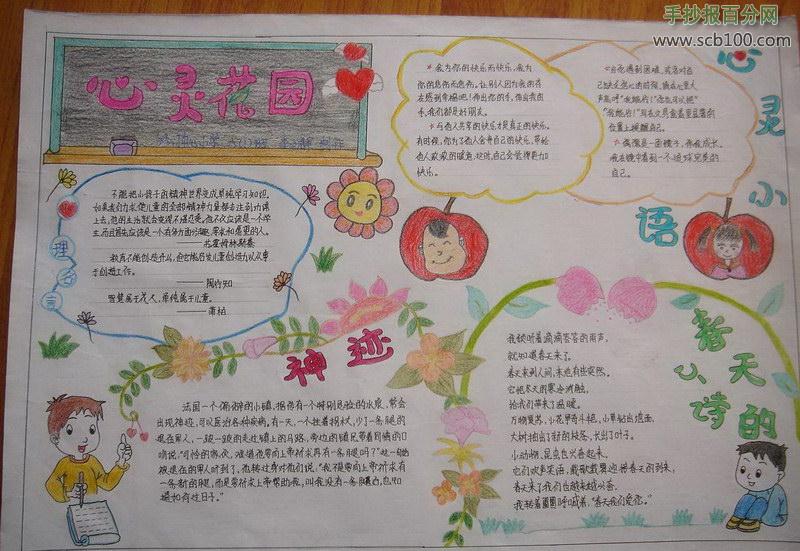 手抄报百分网
www.scb100.com
心灵花园
心灵小语
★ 会为你的快乐而快乐,会为
你的悲伤而悲伤,让别人因为我的存
在感到幸福吧!伸出你的手,伸出我的
手,我们都是好朋友。
★ 与他人共享的快乐才是真正的快乐。
有时候,你为了他人舍弃自己的快乐,带给
他人家家的暖意,这时,自己会觉得更加
快乐。
声能呼“我能行!”“你也可以吧”
位置上提醒自己。
自己。
心理名言
不能把小孩子的精神世界变成单纯学习知识。
如果我们力求使儿童的全部精神力量都专注到功课
上去,他的生活就会变得不堪忍受。他不仅应该是一个学
生,而且首先应该是一个有多方面兴趣、要求和愿望的人。
——苏霍姆林斯基
教育不能创造什么,但它能启发儿童创造力以从事
于创造工作。
——陶行知
智慧属于成人,单纯属于儿童。
——蒲柏
神迹
法国一个偏僻的小镇,据传有一个特别灵验的水泉,常会
出现神迹,可以医治各种疾病。有一天,一个拄着拐杖,少了一条腿的
退伍军人,一跛一跛的走过镇上的马路,旁边的镇民带着同情的口
吻说:“可怜的家伙,难道他要向上帝祈求再有一条腿吗?”这一句话
被退伍的军人听到了,他转过身对他们说:“我不是要向上帝祈求有
一条新的腿,而是要祈求上帝帮助我,叫我没有一条腿后,也知
道如何过日子。”
春天的小诗
我倾听着滴滴答答的雨声,
就知道春天来了。
春天来到人间,末迹有些突然。
它把冬天的寒冷消融,
给我们带来了温暖。
万物复苏,小花争奇斗艳,小草钻出地面,
大树抽出了新的枝条,长出了叶子。
小动物、昆虫也兴奋起来。
它们欢声笑语,载歌载舞迎接春天的到来,
春天来了我们也越来越兴奋。